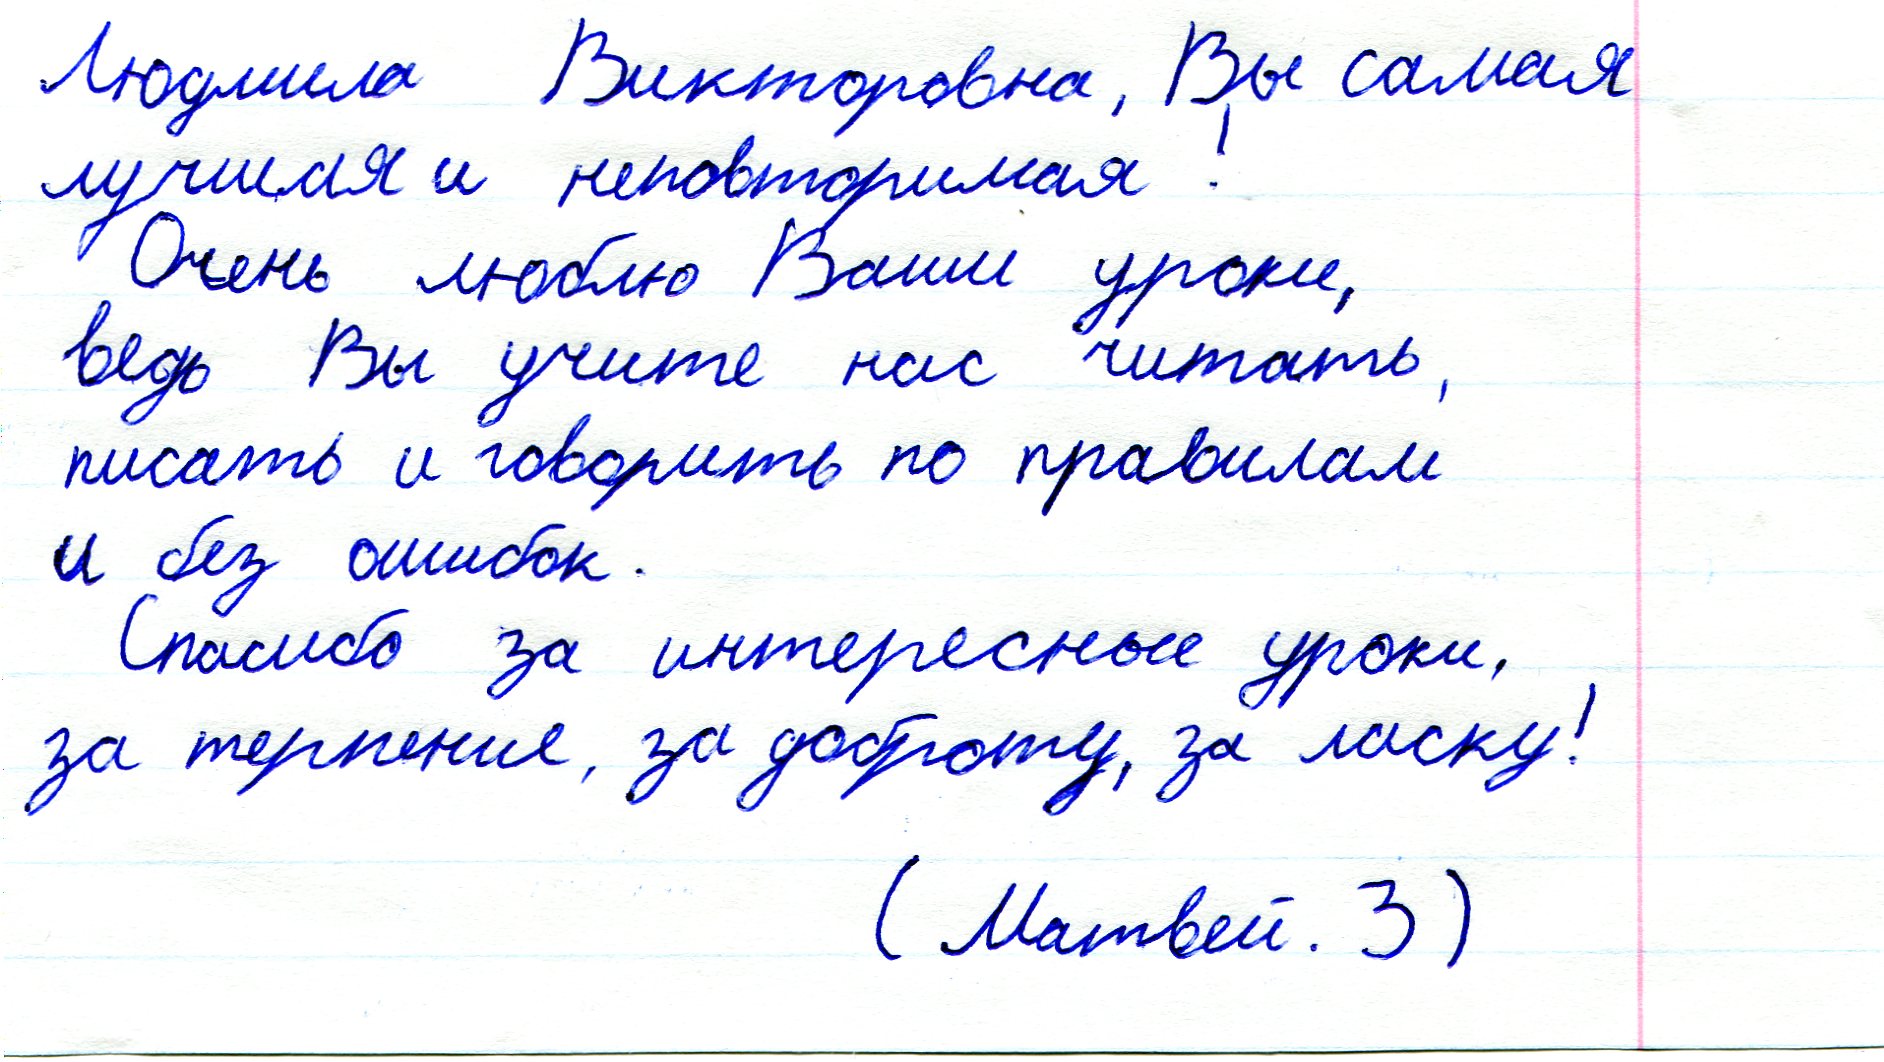 Людмила Викторовна, Вы самая
лучшая и неповторимая!
Очень люблю Ваши уроки,
ведь Вы учите нас читать,
писать и говорить по правилам
и без ошибок.
Спасибо за интересные уроки,
за терпение, за доброту, за ласку!
(Матвей. З)